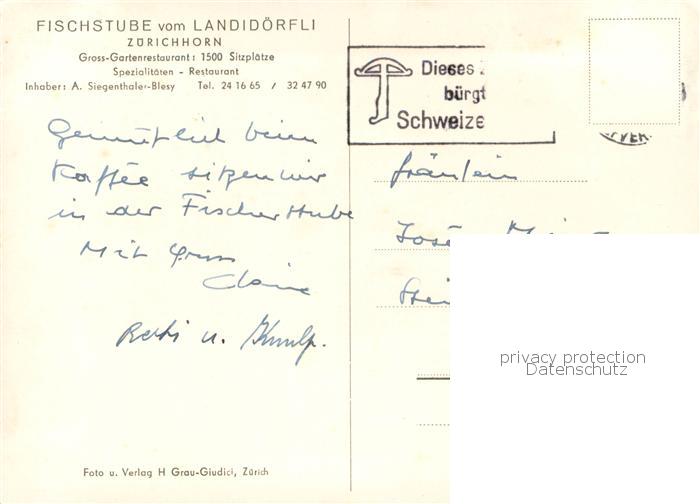 FISCHSTUBE vom LANDIDÖRFLI
ZÜRICHHORN
Gross-Gartenrestaurant: 1500 Sitzplätze
Spezialitäten - Restaurant
Inhaber: A. Siegenthaler-Blesy Tel. 24 16 65 / 32 47 90
Dieses
bürgt
Schweize
Gemütlich beim
Kaffee sitzen wir
in der Fischerstube
Mit Gruss
Claire
u.
Fräulein
privacy protection
Datenschutz
Foto u. Verlag H Grau-Giudici, Zürich